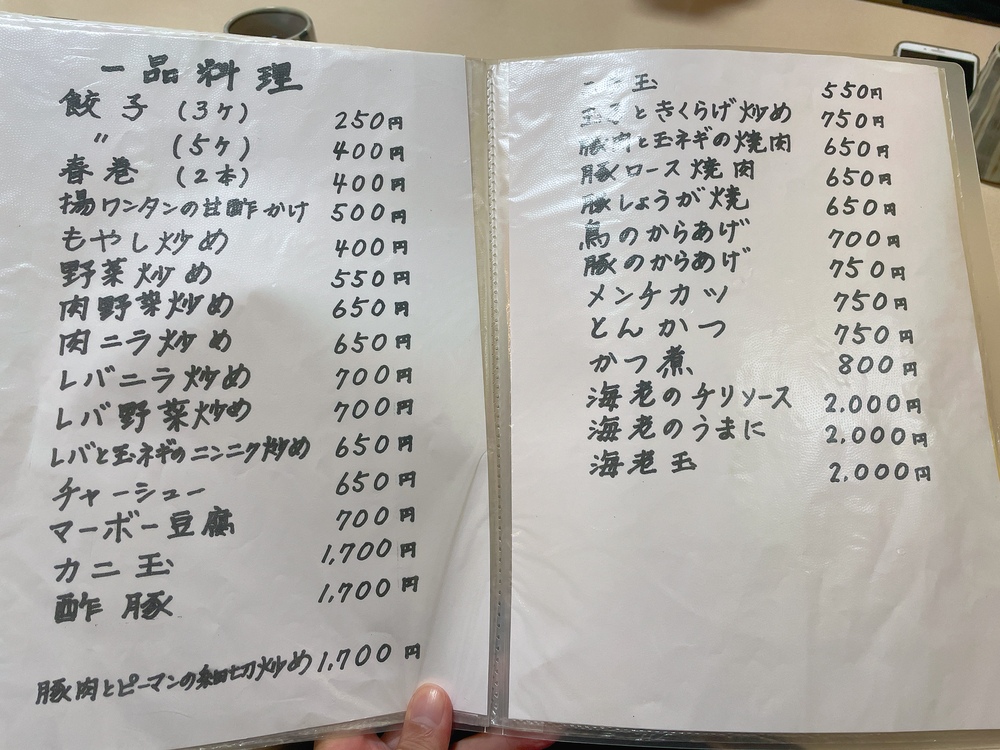 一品料理
餃子 (3ケ) 250円
〃 (5ケ) 400円
春巻 (2本) 400円
揚ワンタンの甘酢かけ 500円
もやし炒め 400円
野菜炒め 550円
肉野菜炒め 650円
肉ニラ炒め 650円
レバニラ炒め 700円
レバ野菜炒め 700円
レバと玉ネギのニンニク炒め 650円
チャーシュー 650円
マーボー豆腐 700円
カニ玉 1,700円
酢豚 1,700円
豚肉とピーマンの細切炒め 1,700円
玉 550円
玉子ときくらげ炒め 750円
豚肉と玉ネギの焼肉 650円
豚ロース焼肉 650円
豚しょうが焼 650円
鳥のからあげ 700円
豚のからあげ 750円
メンチカツ 750円
とんかつ 750円
かつ煮 800円
海老のチリソース 2,000円
海老のうまに 2,000円
海老玉 2,000円